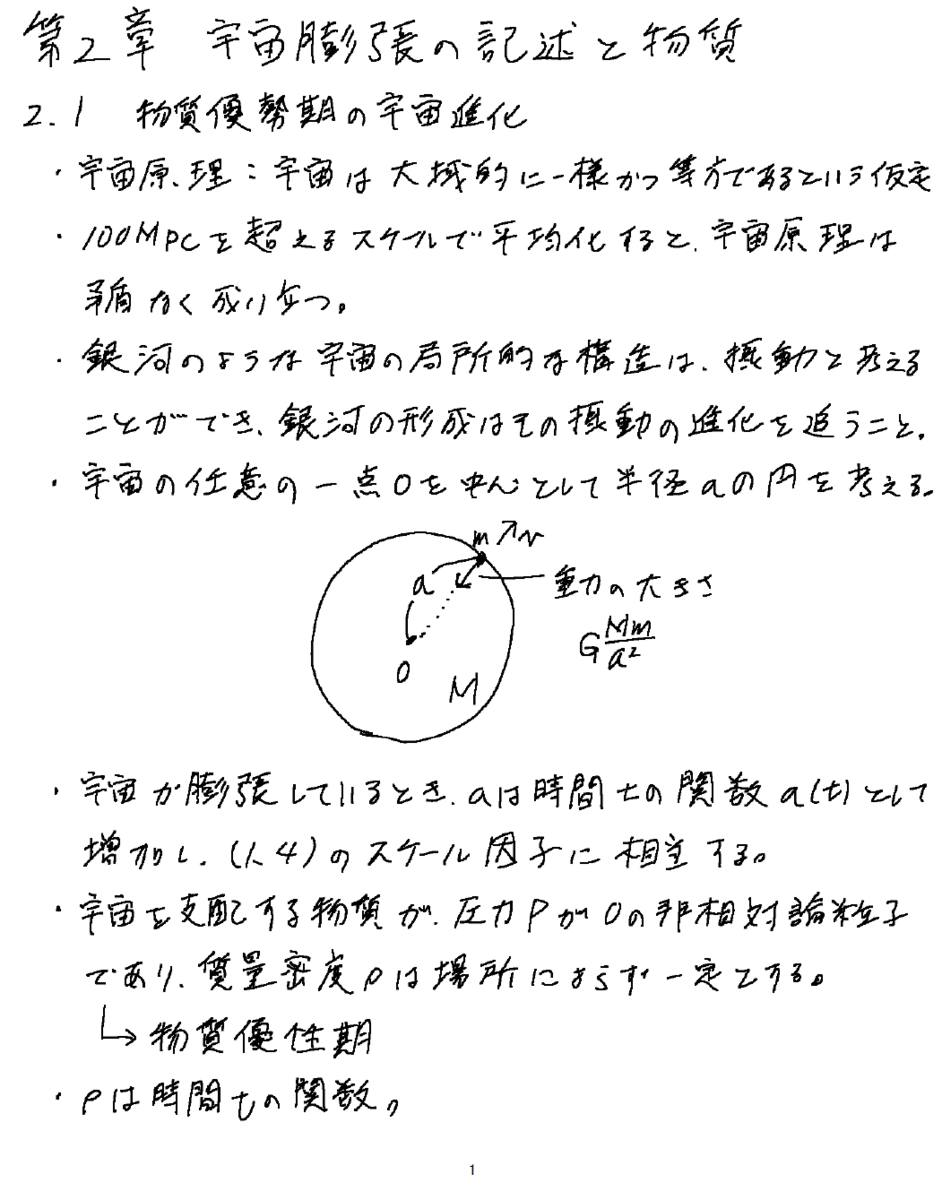 第2章 宇宙膨張の記述と物質
2.1 物質優勢期の宇宙進化
・宇宙原理:宇宙は大域的に一様かつ等方であるという仮定
・100Mpcを超えるスケールで平均化すると、宇宙原理は
矛盾なく成り立つ。
・銀河のような宇宙の局所的な構造は、摂動と考える
ことができ、銀河の形成はその摂動の進化を追うこと。
・宇宙の任意の一点Oを中心として半径aの円を考える。
m v
a
重力の大きさ
G Mm/a²
O
M
・宇宙が膨張しているとき、aは時間tの関数a(t)として
増加し、(1.4)のスケール因子に相当する。
・宇宙を支配する物質が、圧力Pが0の非相対論粒子
であり、質量密度ρは場所によらず一定とする。
↳物質優性期
・ρは時間tの関数。
1